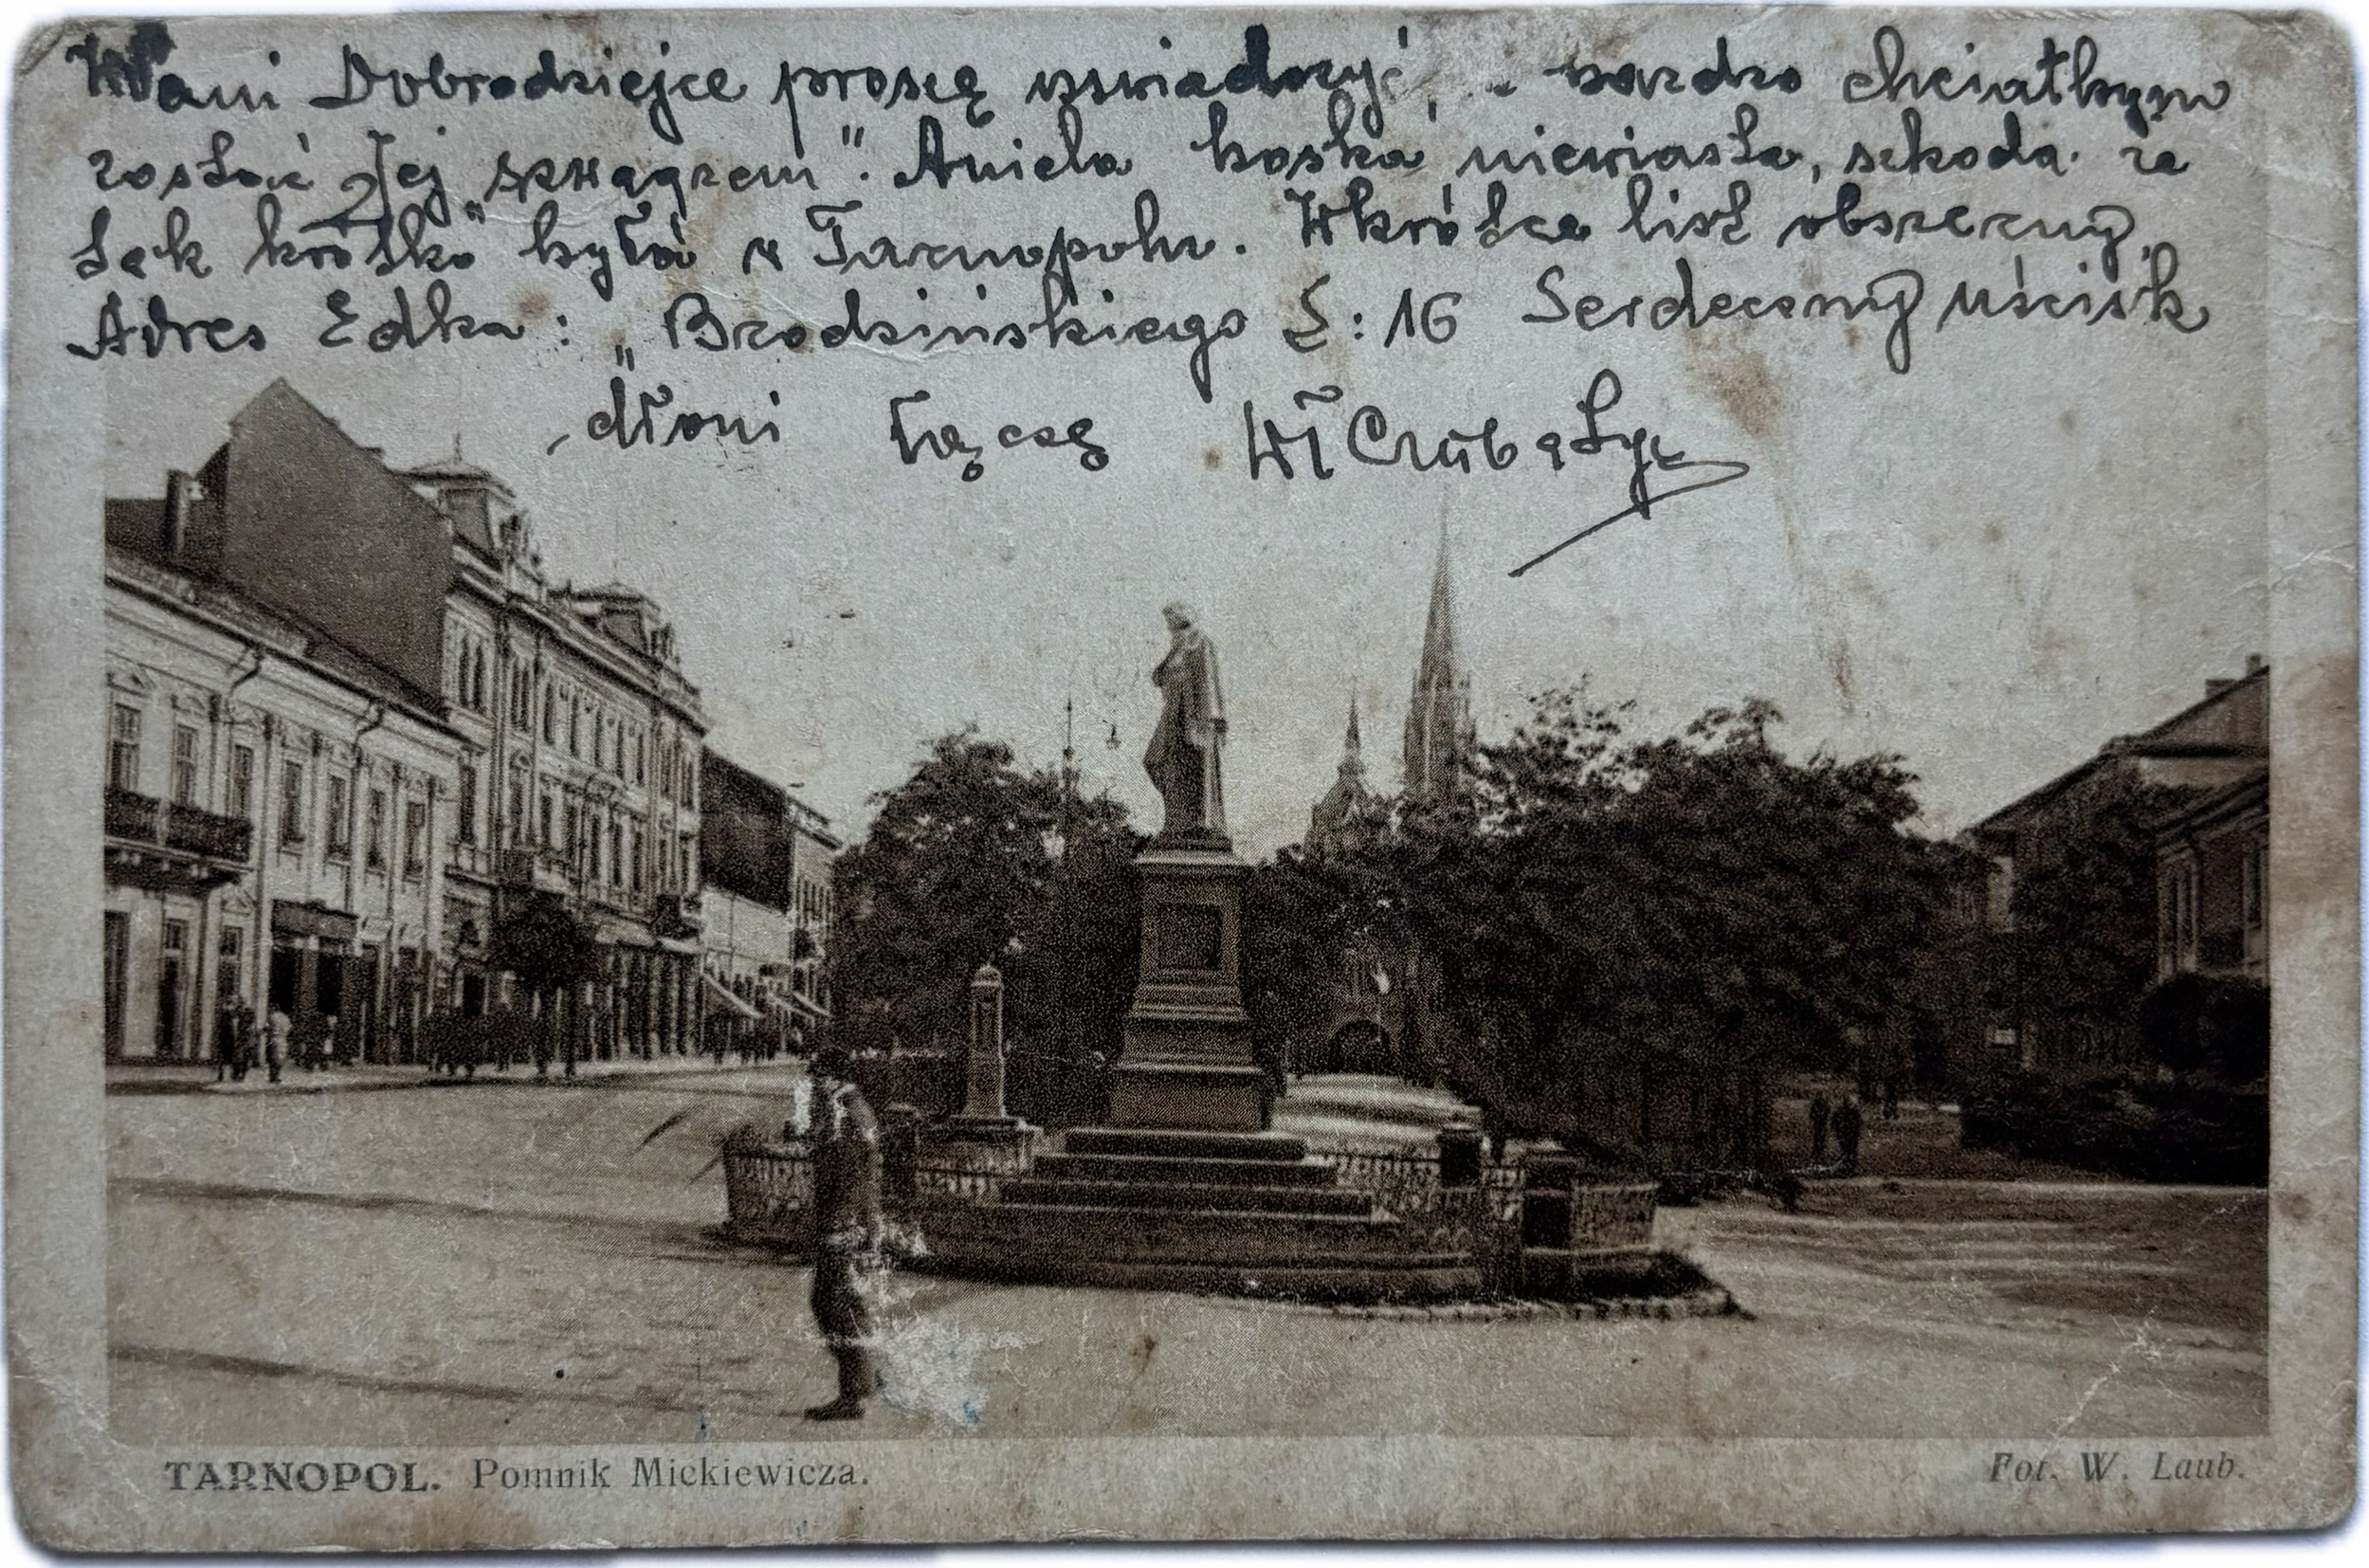 WPani Dobrodziejce proszę uświadczyć, - bardzo chciałbym
zostać Jej „szwagrem". Aniela boska niewiasta, szkoda że
tak krótko była w Tarnopolu. Wkrótce list obszerny,
Adres Edka: „Brodzińskiego L: 16 Serdeczny uścisk
dłoni łączę Wł
TARNOPOL. Pomnik Mickiewicza.
Fot. W. Laub.